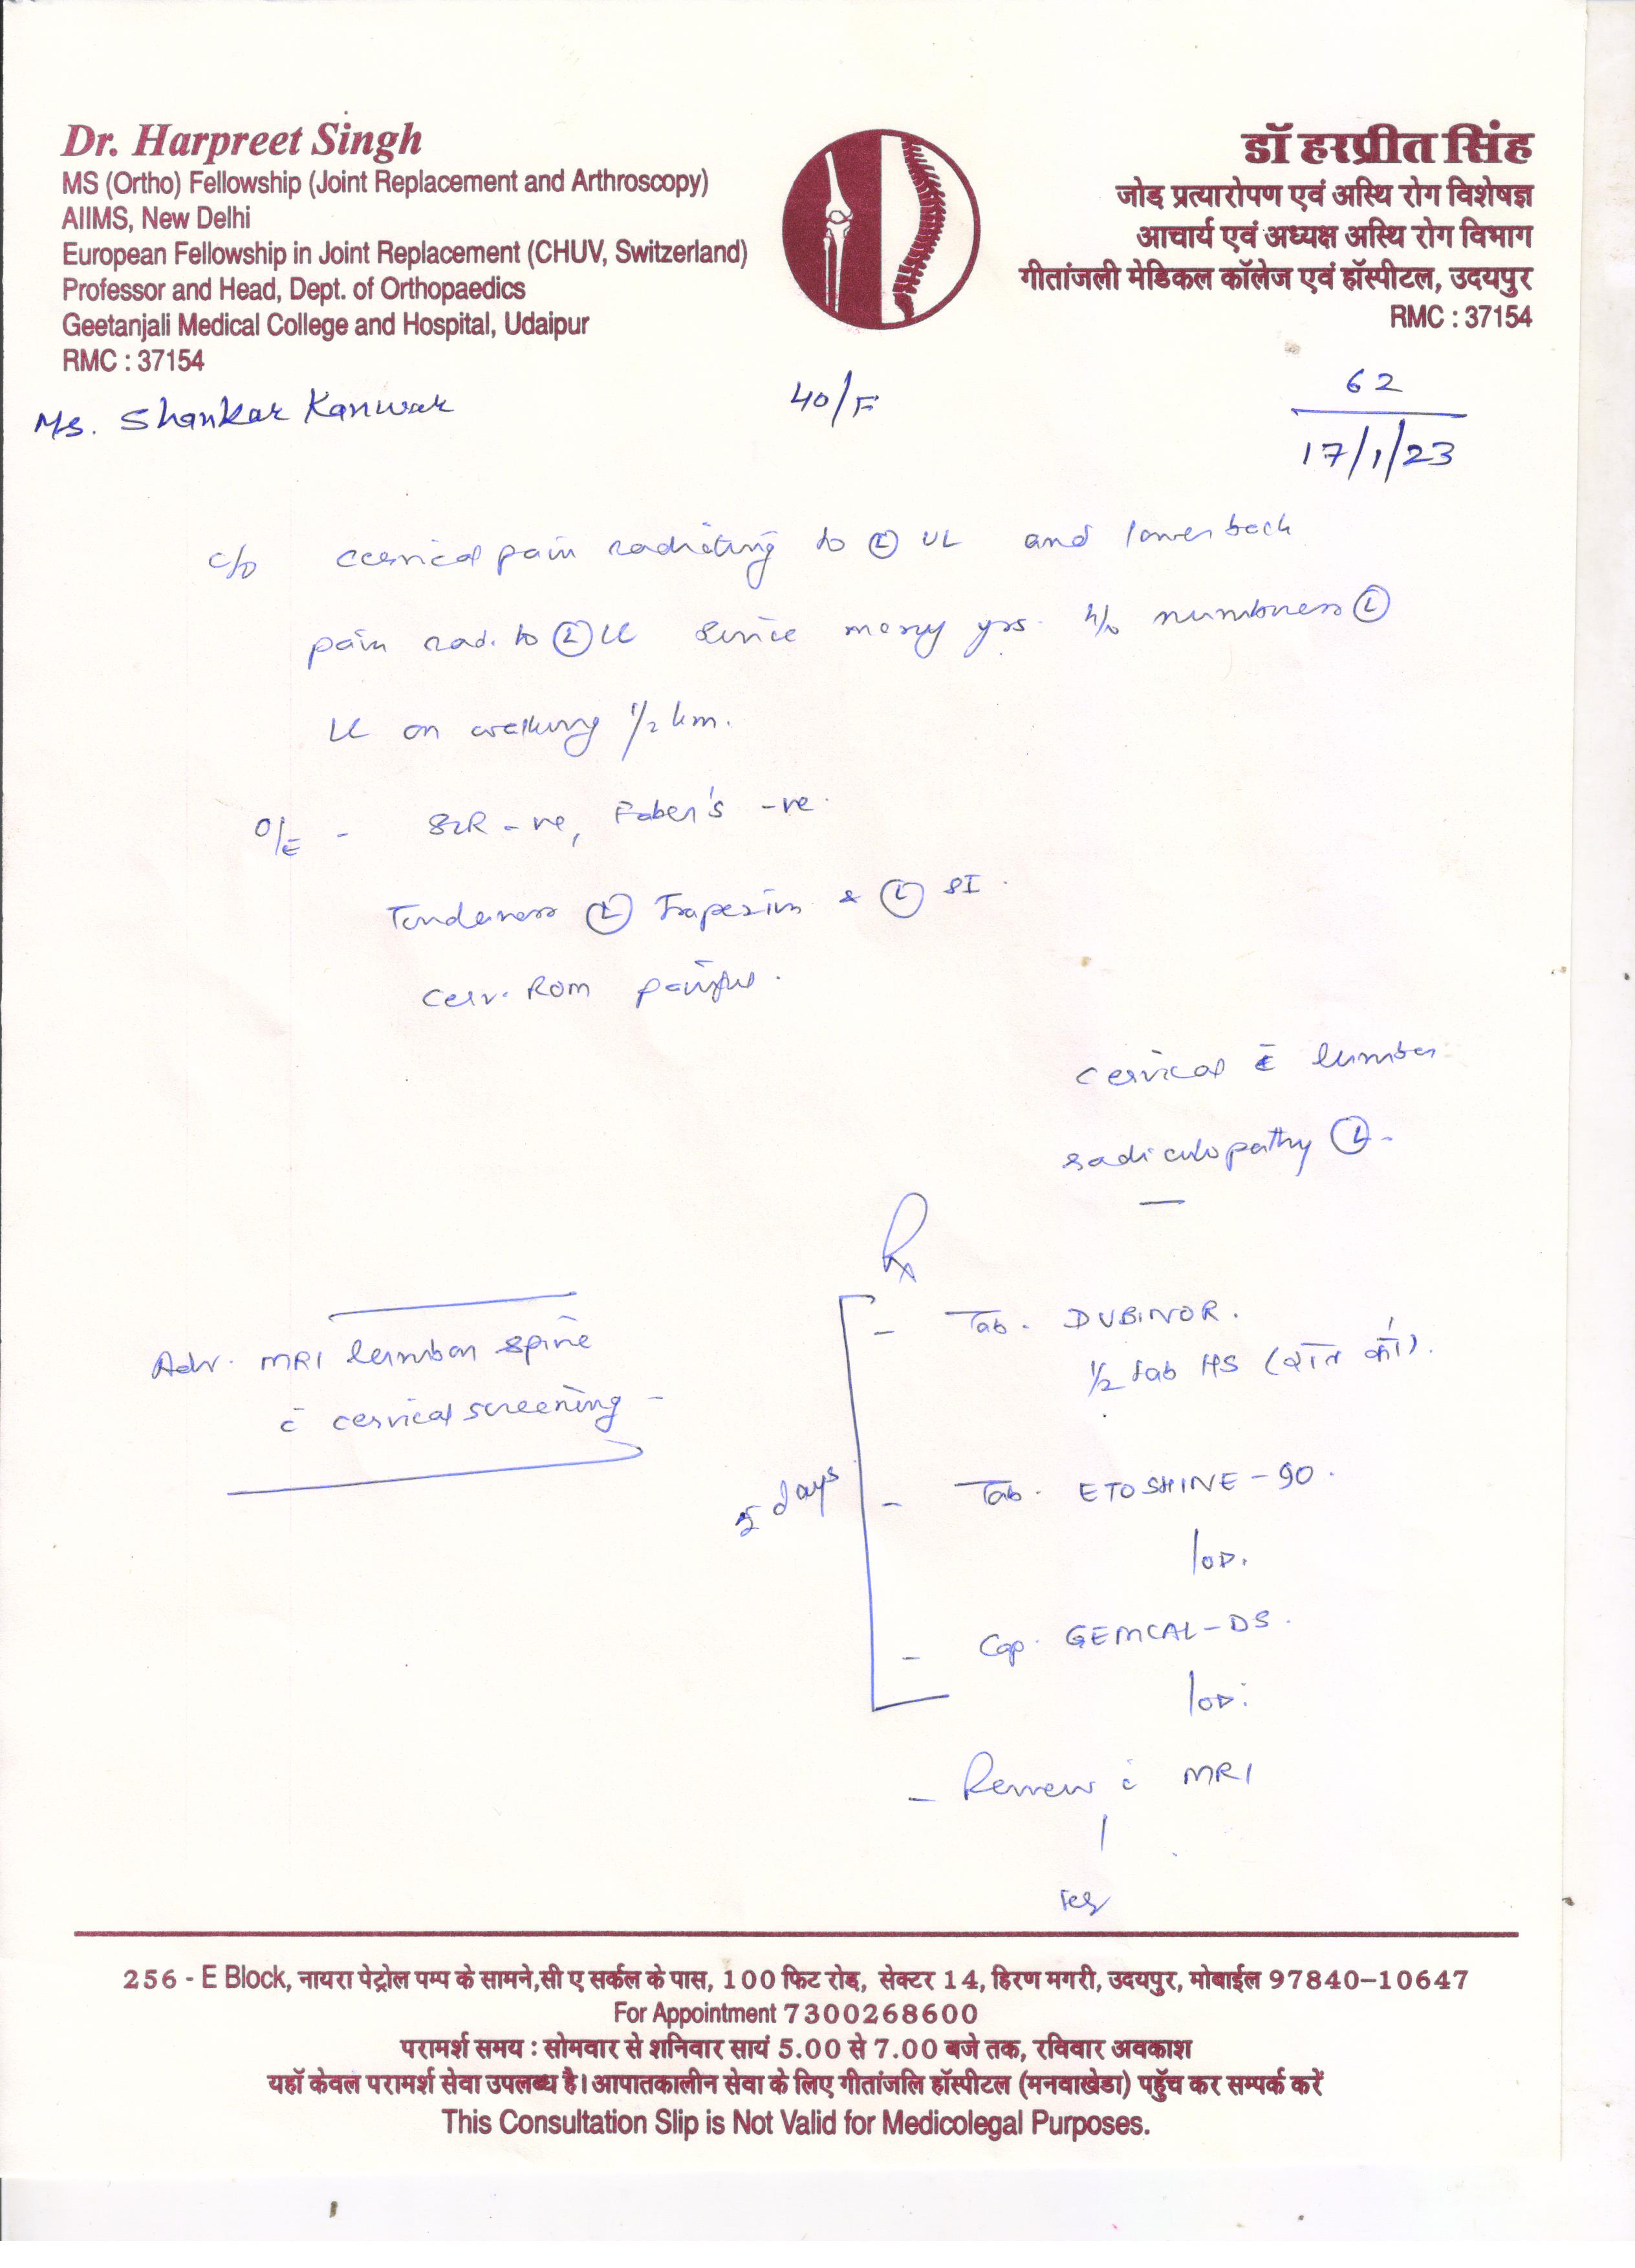 Dr. Harpreet Singh
MS (Ortho) Fellowship (Joint Replacement and Arthroscopy)
AIIMS, New Delhi
European Fellowship in Joint Replacement (CHUV, Switzerland)
Professor and Head, Dept. of Orthopaedics
Geetanjali Medical College and Hospital, Udaipur
RMC : 37154
डॉ हरप्रीत सिंह
जोड प्रत्यारोपण एवं अस्थि रोग विशेषज्ञ
आचार्य एवं अध्यक्ष अस्थि रोग विभाग
गीतांजली मेडिकल कॉलेज एवं हॉस्पीटल, उदयपुर
RMC : 37154
Ms. Shankar Kanwar 40/F
62
17/1/23
c/o cervical pain radiating to Ⓛ UL and lower back
pain rad. to Ⓛ LL since many yrs. h/o numbness Ⓛ
LL on walking 1/2 km.
O/E - SLR -ve, Faber's -ve.
Tenderness Ⓛ Trapezius & Ⓛ SI.
Cerv. ROM painful.
cervical c̄ lumbar
radiculopathy Ⓛ.
Rx
Adv. MRI lumbar spine
c̄ cervical screening
5 days
- Tab. DUBINOR.
1/2 tab HS (रात को).
- Tab. ETOSHINE-90.
1 OD.
- Cap. GEMCAL-DS.
1 OD.
- Review c̄ MRI
256 - E Block, नायरा पेट्रोल पम्प के सामने,सी ए सर्कल के पास, 100 फिट रोड, सेक्टर 14, हिरण मगरी, उदयपुर, मोबाईल 97840-10647
For Appointment 7300268600
परामर्श समय : सोमवार से शनिवार सायं 5.00 से 7.00 बजे तक, रविवार अवकाश
यहॉ केवल परामर्श सेवा उपलब्ध है। आपातकालीन सेवा के लिए गीतांजलि हॉस्पीटल (मनवाखेडा) पहुँच कर सम्पर्क करें
This Consultation Slip is Not Valid for Medicolegal Purposes.